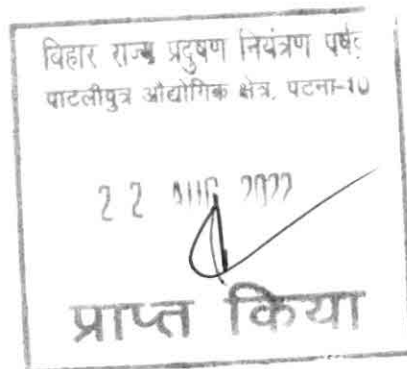 बिहार राज्य प्रदुषण नियंत्रण पर्षद
पाटलीपुत्र औद्योगिक क्षेत्र, पटना-10
2 2 AUG 2022
प्राप्त किया